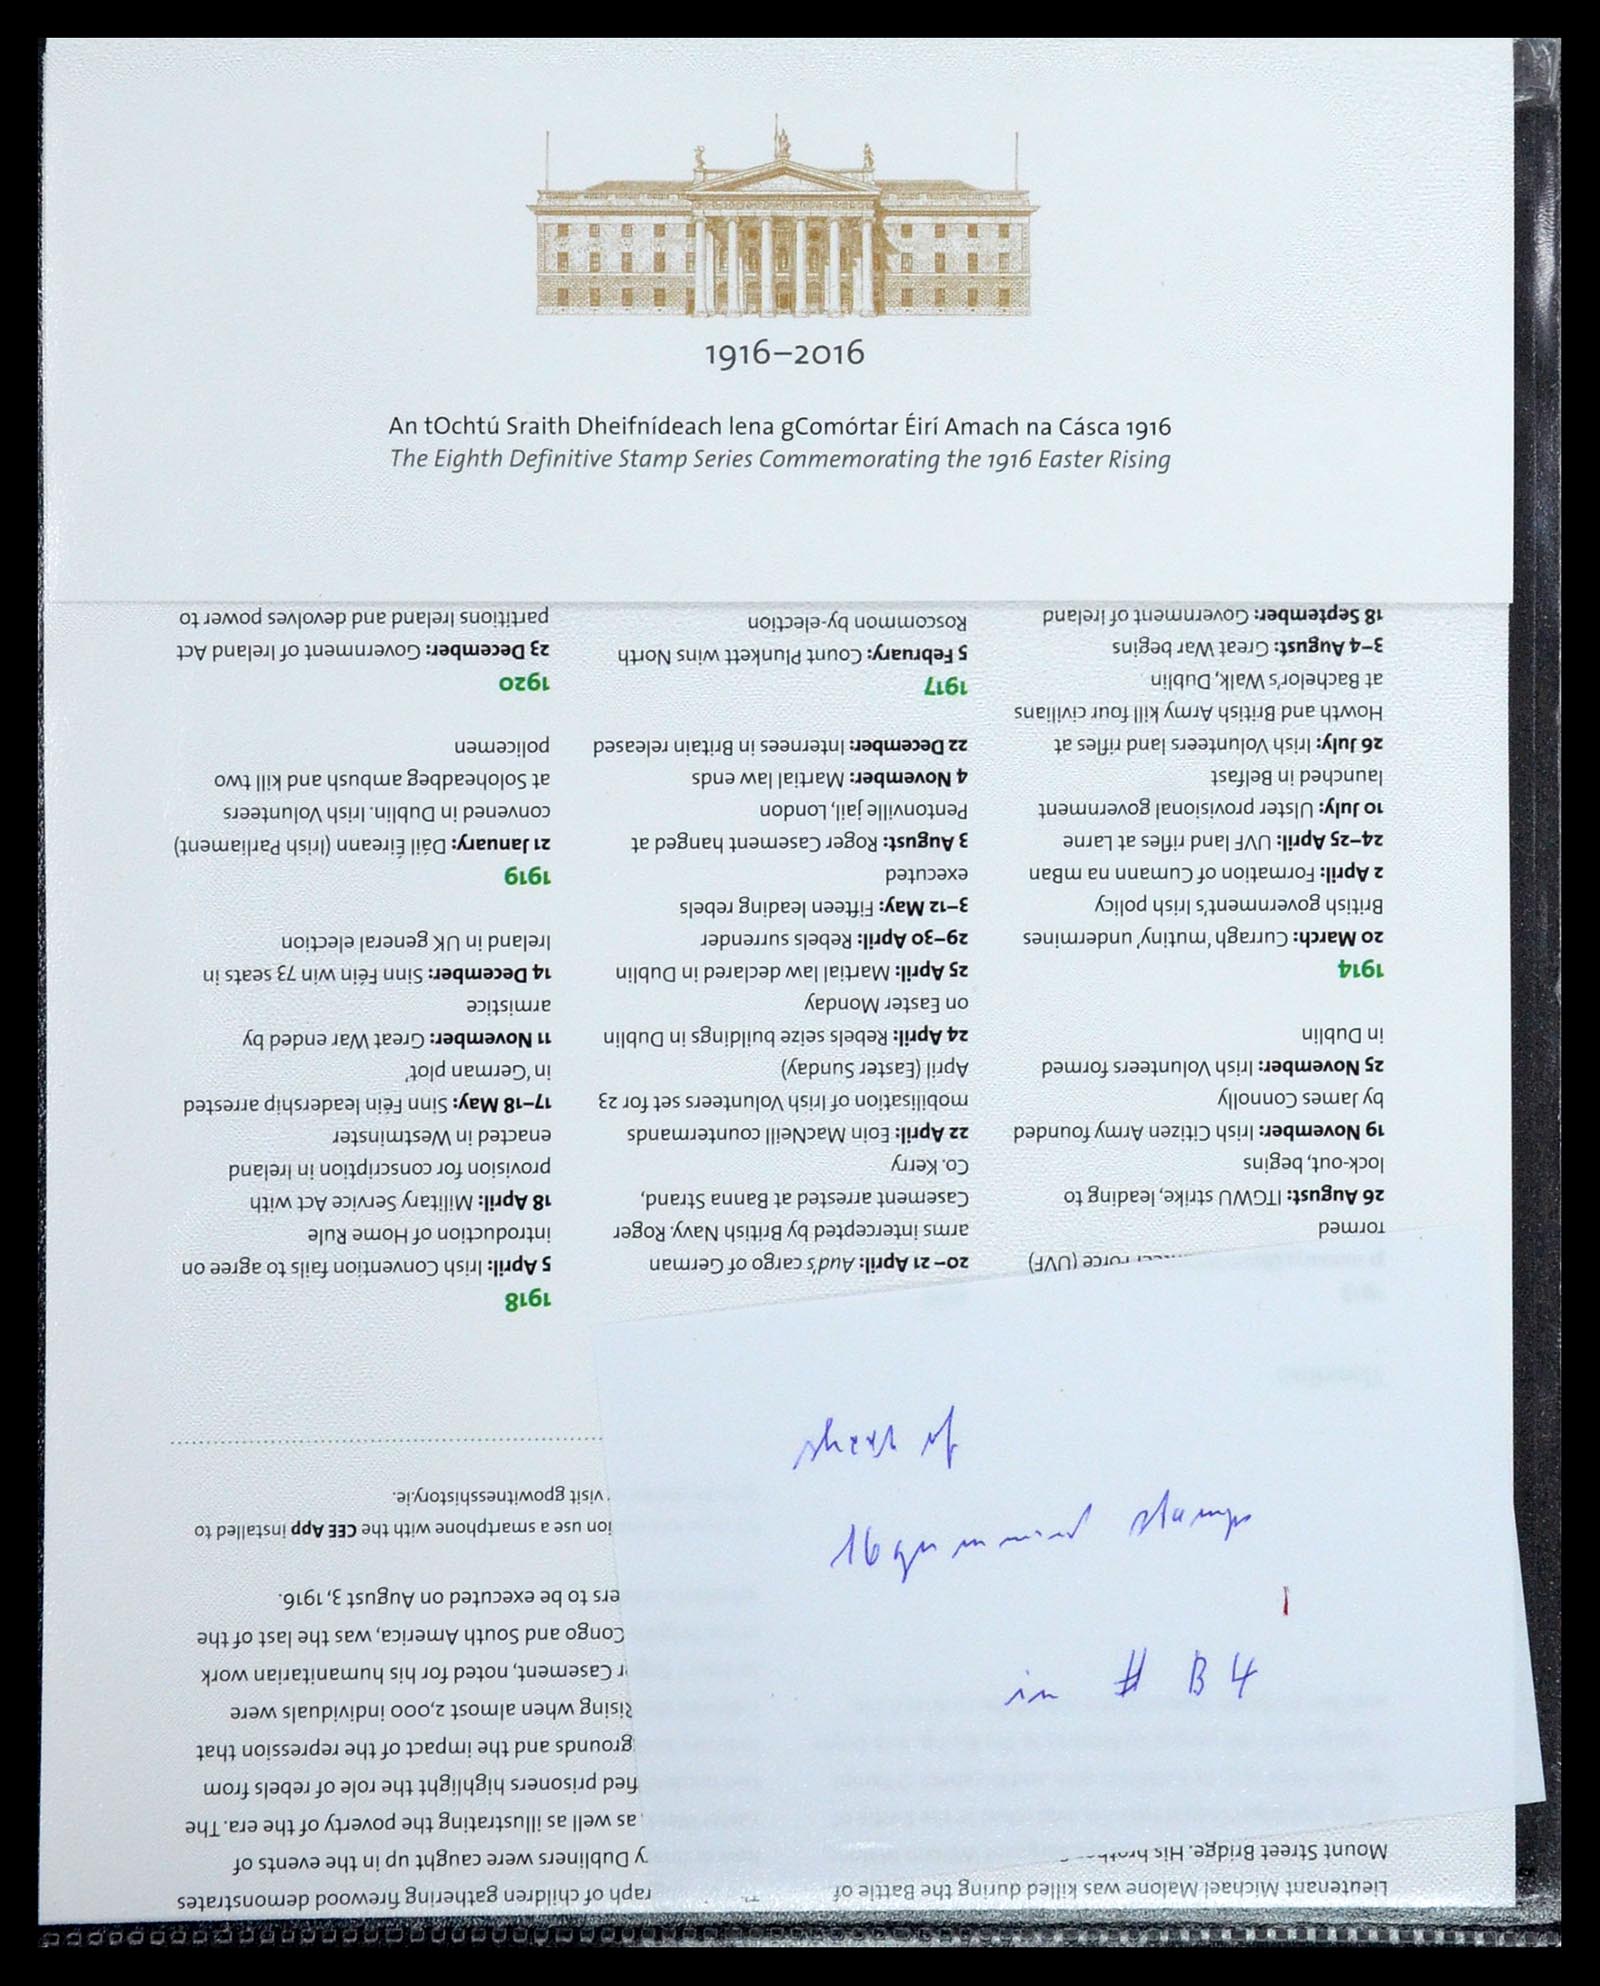 1916–2016
An tOchtú Sraith Dheifnídeach lena gComórtar Éirí Amach na Cásca 1916
The Eighth Definitive Stamp Series Commemorating the 1916 Easter Rising
sheet of
16 gummed stamps
in # B4
Lieutenant Michael Malone was killed during the Battle of
Mount Street Bridge. His
raph of children gathering firewood demonstrates
y Dubliners were caught up in the events of
, as well as illustrating the poverty of the era. The
fied prisoners highlight the role of rebels from
grounds and the impact of the repression that
Rising when almost 2,000 individuals were
r Casement, noted for his humanitarian work
Congo and South America, was the last of the
ers to be executed on August 3, 1916.
ion use a smartphone with the CEE App installed to
visit gpowitnesshistory.ie.
Force (UVF)
formed
26 August: ITGWU strike, leading to
lock-out, begins
19 November: Irish Citizen Army founded
by James Connolly
25 November: Irish Volunteers formed
in Dublin
1914
20 March: Curragh ‘mutiny’ undermines
British government’s Irish policy
2 April: Formation of Cumann na mBan
24–25 April: UVF land rifles at Larne
10 July: Ulster provisional government
launched in Belfast
26 July: Irish Volunteers land rifles at
Howth and British Army kill four civilians
at Bachelor’s Walk, Dublin
3–4 August: Great War begins
18 September: Government of Ireland
20– 21 April: Aud’s cargo of German
arms intercepted by British Navy. Roger
Casement arrested at Banna Strand,
Co. Kerry
22 April: Eoin MacNeill countermands
mobilisation of Irish Volunteers set for 23
April (Easter Sunday)
24 April: Rebels seize buildings in Dublin
on Easter Monday
25 April: Martial law declared in Dublin
29–30 April: Rebels surrender
3–12 May: Fifteen leading rebels
executed
3 August: Roger Casement hanged at
Pentonville jail, London
4 November: Martial law ends
22 December: Internees in Britain released
1917
5 February: Count Plunkett wins North
Roscommon by-election
1918
5 April: Irish Convention fails to agree on
introduction of Home Rule
18 April: Military Service Act with
provision for conscription in Ireland
enacted in Westminster
17–18 May: Sinn Féin leadership arrested
in ‘German plot’
11 November: Great War ended by
armistice
14 December: Sinn Féin win 73 seats in
Ireland in UK general election
1919
21 January: Dáil Éireann (Irish Parliament)
convened in Dublin. Irish Volunteers
at Soloheadbeg ambush and kill two
policemen
1920
23 December: Government of Ireland Act
partitions Ireland and devolves power to